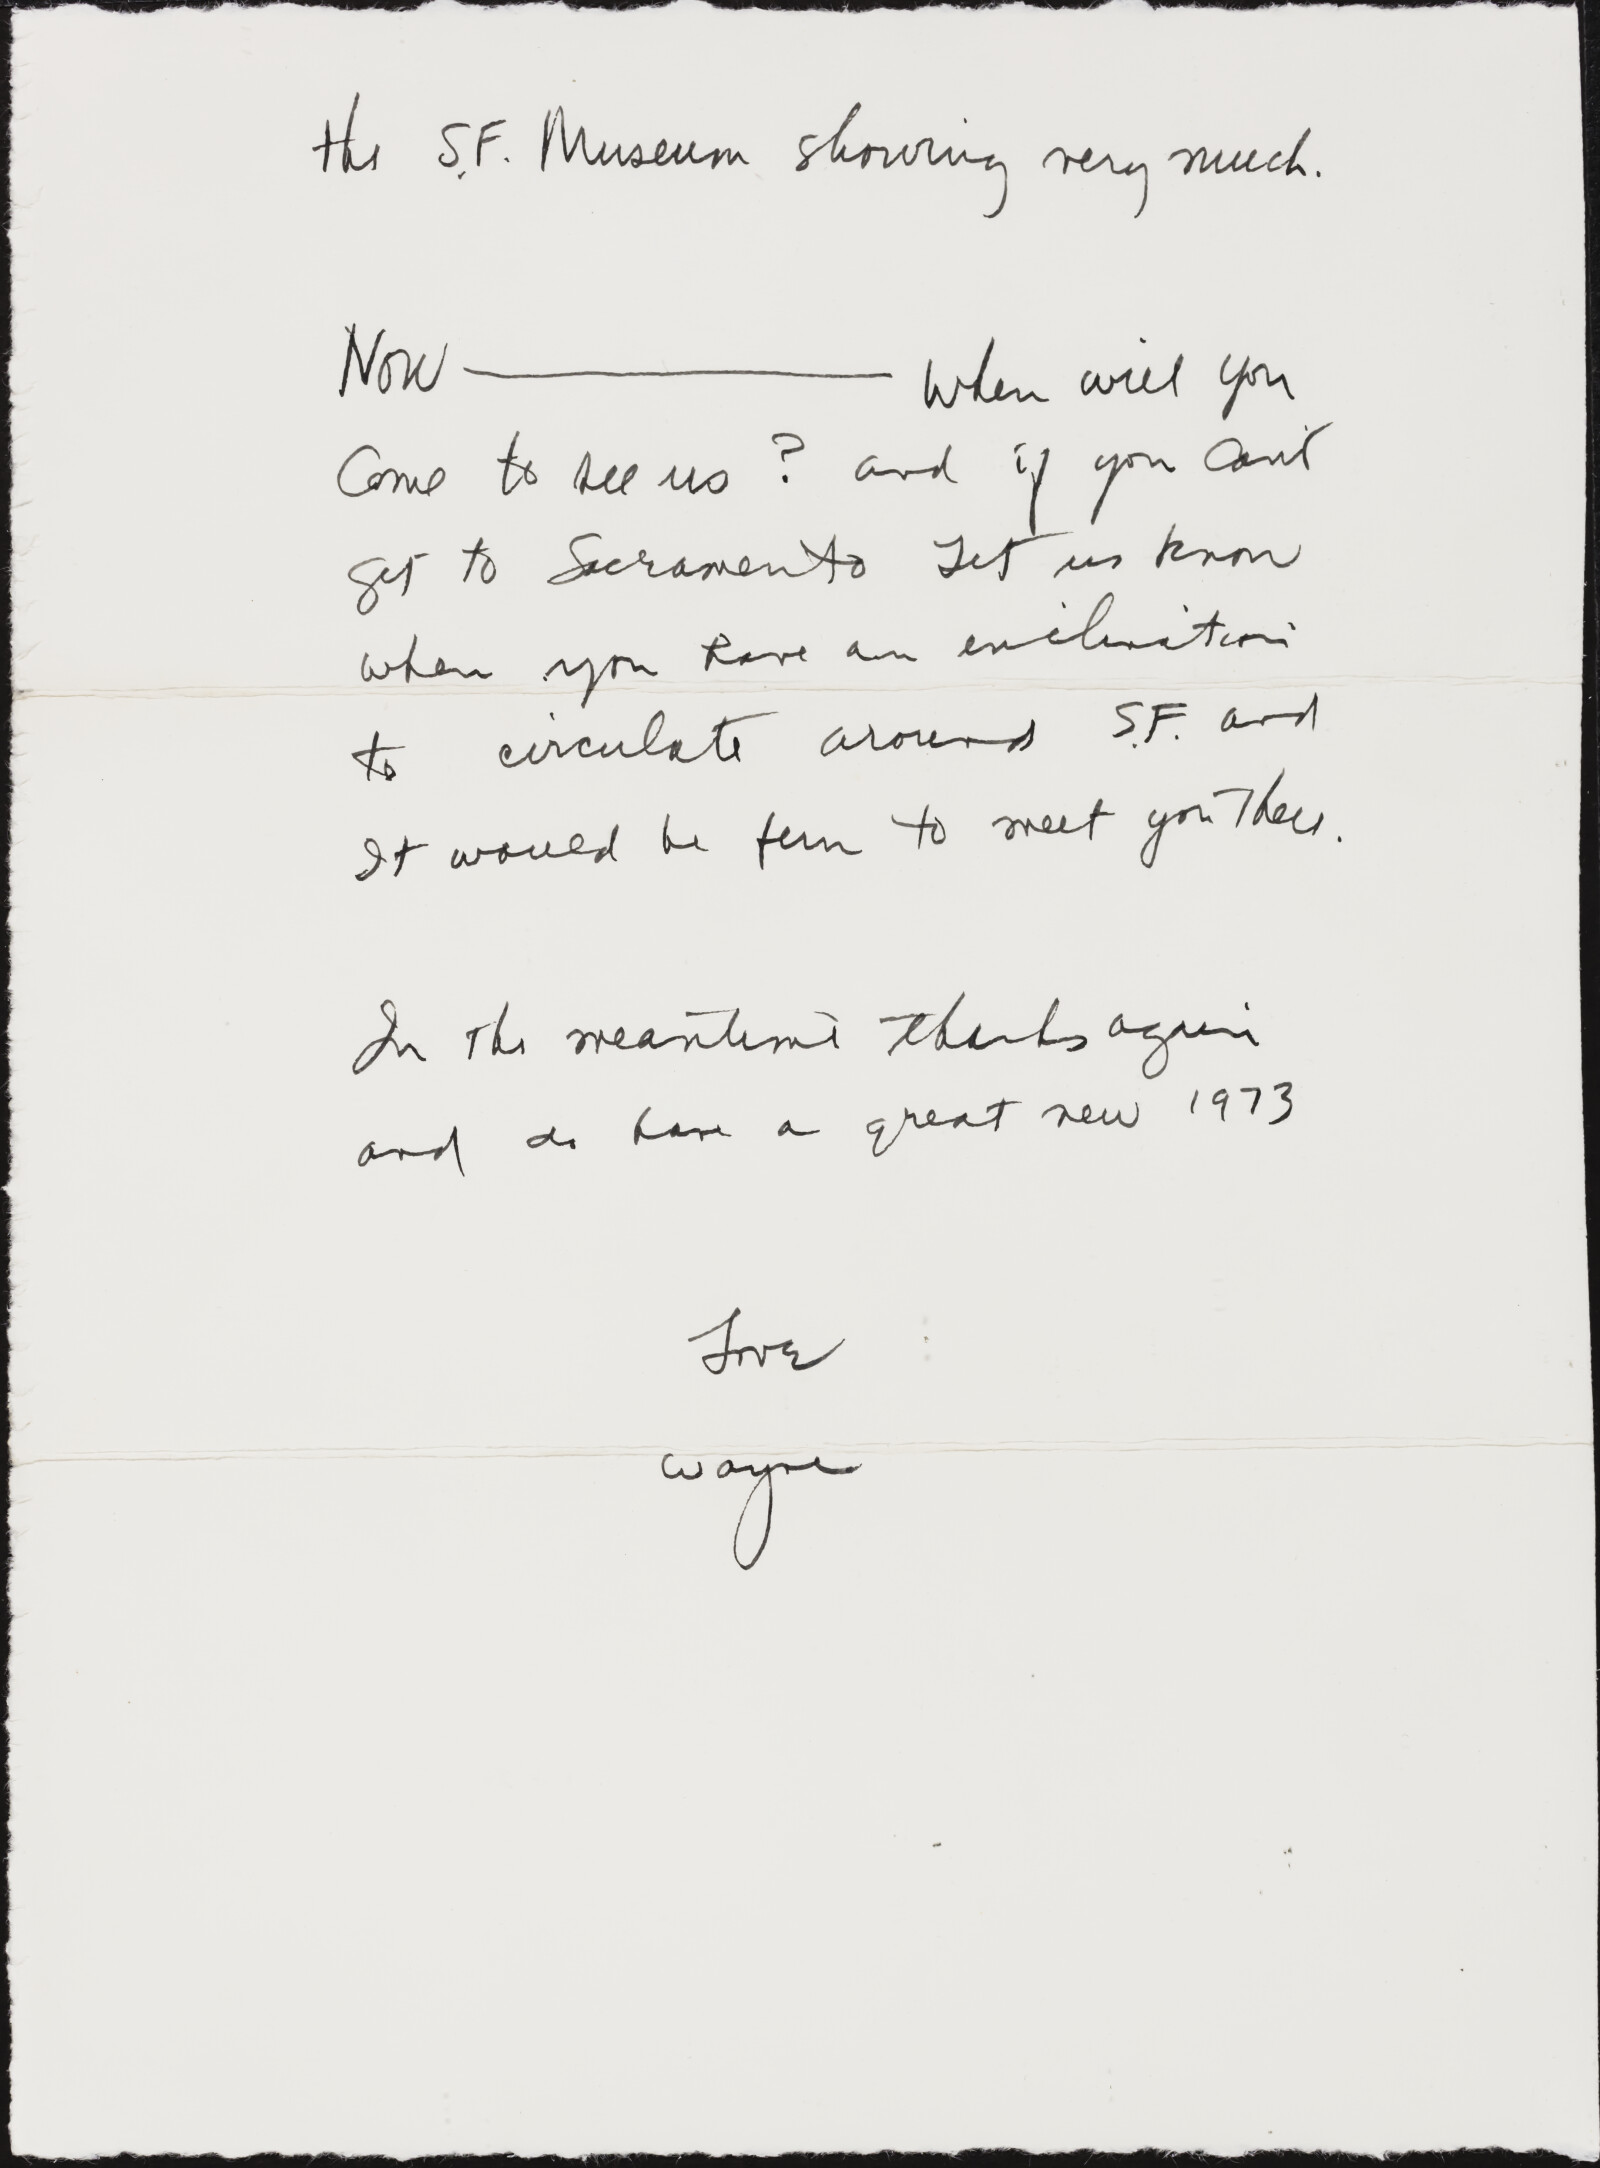 the S.F. Museum showing very much.
Now — When will you
Come to see us? and if you can't
get to Sacramento Let us know
when you have an inclination
to circulate around S.F. and
It would be fun to meet you There.
In the meantime thanks again
and do have a great new 1973
Love
Wayne